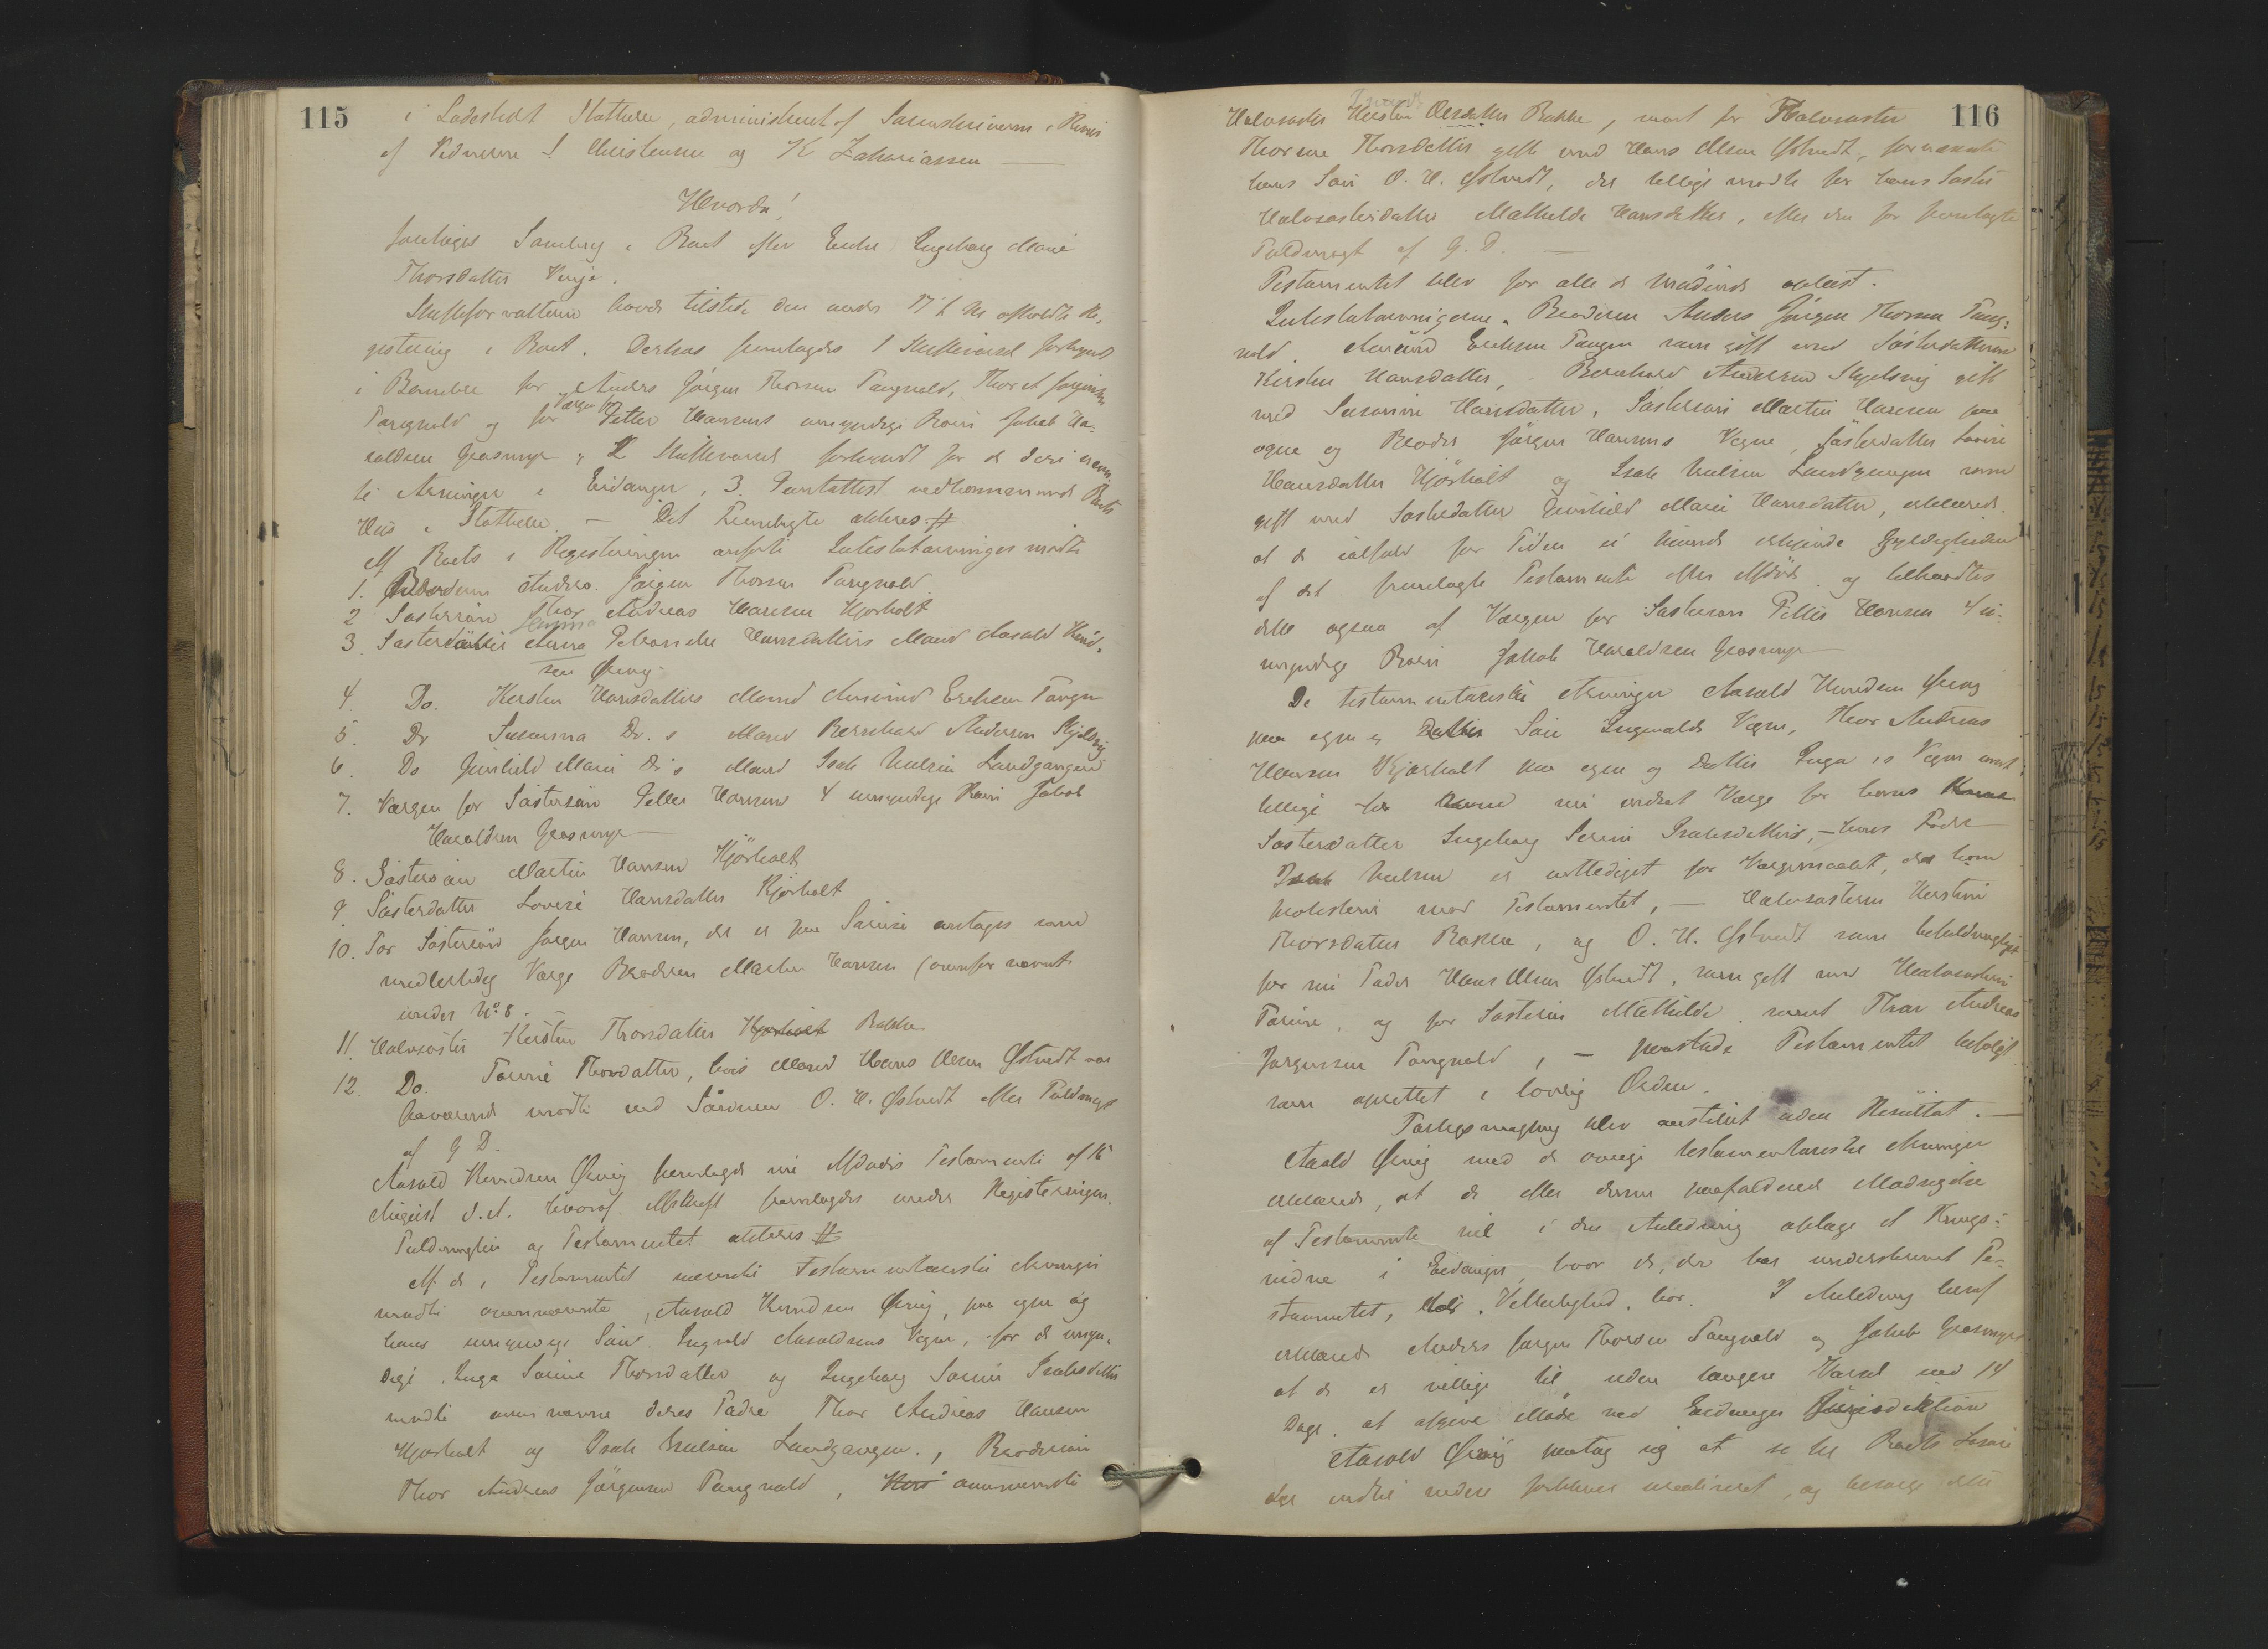 115
i Ladestedet Stathelle, administreret af Sorenskriveren i Overvær
af Vidnerne J Christensen og K Zakariassen
Hvorda!
foretoges Samling i Boet efter Enke Ingeborg Marie
Thorsdatter Kverje.
Skifteforvalteren havde tilstede den under 17 f. M. afholdte Re-
gistering i Boet. Derhos fremlagdes 1 Skiftevarsel forkyndt
i Bamble for Anders Jørgen Thorsen Tangvald, Thor A Jørgensen
Tangvald og for Værgen for Petter Hansens umyndige Børn Jakob Ha-
raldsen Grasmyr, 2 Skiftevarsel forkyndt for de deri nævn-
te Arvinger i Eidanger, 3. Panteattest vedkommende Boets
Hus i Stathelle. — Det Fremlagte akteres #
Af Boets i Registeringen anførte Intestatarvinger mødte
1. Broderen Anders Jørgen Thorsen Tangvald
2 Søstersøn Thor Andreas Hansen Kjørholt
3. Søsterdatter Anna Petronelle Hansdatters Mand Aasold Knud-
sen Ørvig
4. Do. Kirsten Hansdatters Mand Amund Eriksen Tangen
5. Do Susanna Do. s Mand Bernhard Andersen Skjelsvig
6. Do Gunhild Marie Do's Mand Isak Nielsen Landgangen
7. Værgen for Søstersøn Petter Hansens 4 umyndige Børn Jakob
Haraldsen Grasmyr
8. Søstersøn Martin Hansen Kjørholt
9 Søsterdatter Lovise Hansdatter Kjørholt
10. For Søstersøn Jørgen Hansen, der er paa Søreise antoges som
midlertidig Værge Broderen Martin Hansen (ovenfor nævnt
under No 8.
11. Halvsøster Kirsten Thorsdatter Kjørholt Bakke
12. Do. Torine Thorsdatter, hvis Mand Hans Olsen Østvedt var
fraværende mødte ved Sønnen O. H. Østvedt efter Fuldmagt
af G D.
Aasold Knudsen Ørvig fremlagde nu Afdødes Testamente af 16
August d. A. hvoraf Afskrift fremlagdes under Registeringen.
Fuldmagten og Testamentet akteres #
Af de i Testamentet nævnte testamentariske Arvinger
mødte ovennævnte Aasold Knudsen Ørvig, paa egne og
hans umyndige Søn Ingvald Aasoldsens Vegne, for de umyn-
dige Inga Sorine Thorsdatter og Ingeborg Sorine Isaksdatter
mødte ovennævnte deres Fædre Thor Andreas Hansen
Kjørholt og Isak Nielsen Landgangen, Brodersøn
Thor Andreas Jørgensen Tangvald, Hans ovennævnte
116
Halvsøster Kirsten Olesdatter Bakke, samt for Halvsøster
Thorsdatter gift med Hans Olsen Østvedt, fornævnte
hans Søn O. H. Østvedt, der tillige mødte for hans Søster
Halvsøsterdatter Mathilde Hansdatter, efter den for fremlagte
Fuldmagt af G. D. —
Testamentet blev for alle de Mødende oplæst.
Intestatarvingerne Broderen Anders Jørgen Thorsen Tang-
vald, Amund Eriksen Tangen som gift med Søsterdatteren
Kirsten Hansdatter, Bernhard Andersen Skjelsvig gift
med Susanne Hansdatter, Søstersøn Martin Hansen paa
egne og Broder Jørgen Hansens Vegne, Søsterdatter Lovise
Hansdatter Kjørholt og Isak Nielsen Landgangen som
gift med Søsterdatter Gunhild Marie Hansdatter, erklærede
at de ialfald for Tiden ei kunde erkjende Gyldigheden
af det fremlagte Testamente efter Afdøde og tiltraadtes
dette ogsaa af Værgen for Søstersøn Petter Hansens 4 u-
myndige Børn Jakob Haraldsen Grasmyr —
De testamentariske Arvinger Aasold Knudsen Ørvig
paa egne og Søn Ingvalds Vegne, Thor Andreas
Hansen Kjørholt paa egne og Datter Inga's Vegne samt
tillige som nu ansat Værge for hans
Søsterdatter Ingeborg Serine Isaksdatter, — hans Fader
Isak Nielsen er entlediget for Værgemaalet, da han
protesterer mod Testamentet, — Halvsøsteren Kirstine
Thorsdatter Bakke, og O. H. Østvedt som befuldmægtiget
for sin Fader Hans Olsen Østvedt, som gift med Halvsøsteren
Torine, og for Søsteren Mathilde samt Thor Andreas
Jørgensen Tangvald, — paastode Testamentet befulgt
som oprettet i lovlig Orden.
Forligsmægling blev anstillet uden Resultat. —
Aasold Ørvig med de øvrige testamentariske Arvinger
erklærede, at de efter denne paafaldende Modsigelse
af Testamentet vil i den Anledning optage et Tings-
vidne i Eidanger, hvor de, der har underskrevet Te-
stamentet, til Vitterlighed, bor. I Anledning heraf
erklærede Anders Jørgen Thorsen Tangvald og Jakob Grasmyr
at de er villige til uden længere Varsel end 14
Dage, at afgive Møde ved Eidanger Jurisdiktion
Aasold Ørvig paatog sig at se til Boets Løsøre
der indtil videre forbliver urealiseret, og besørge